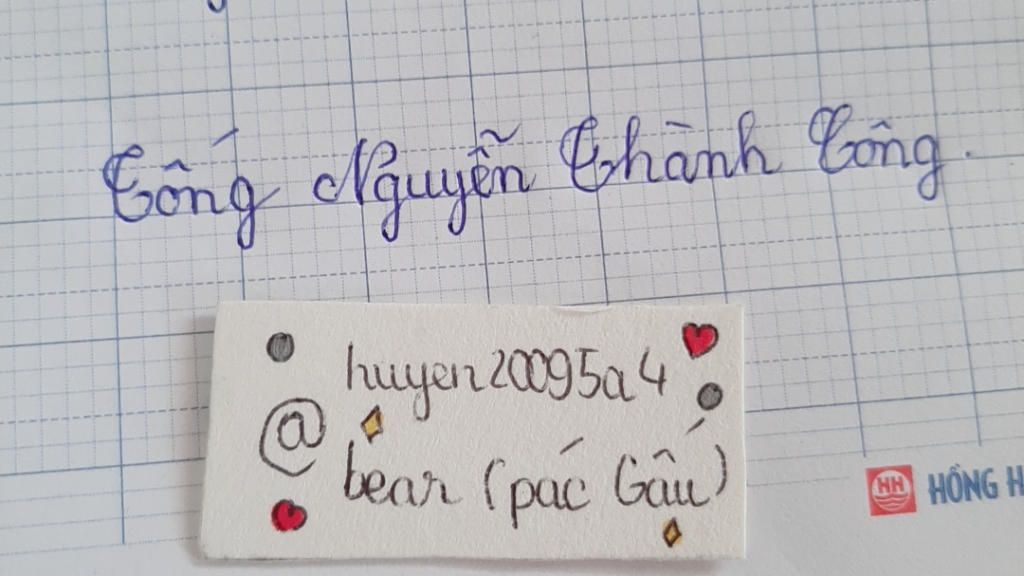 Tống Nguyễn Thành Công.
huyen20095a4
@
bear (pác Gấu)
HH HỒNG H